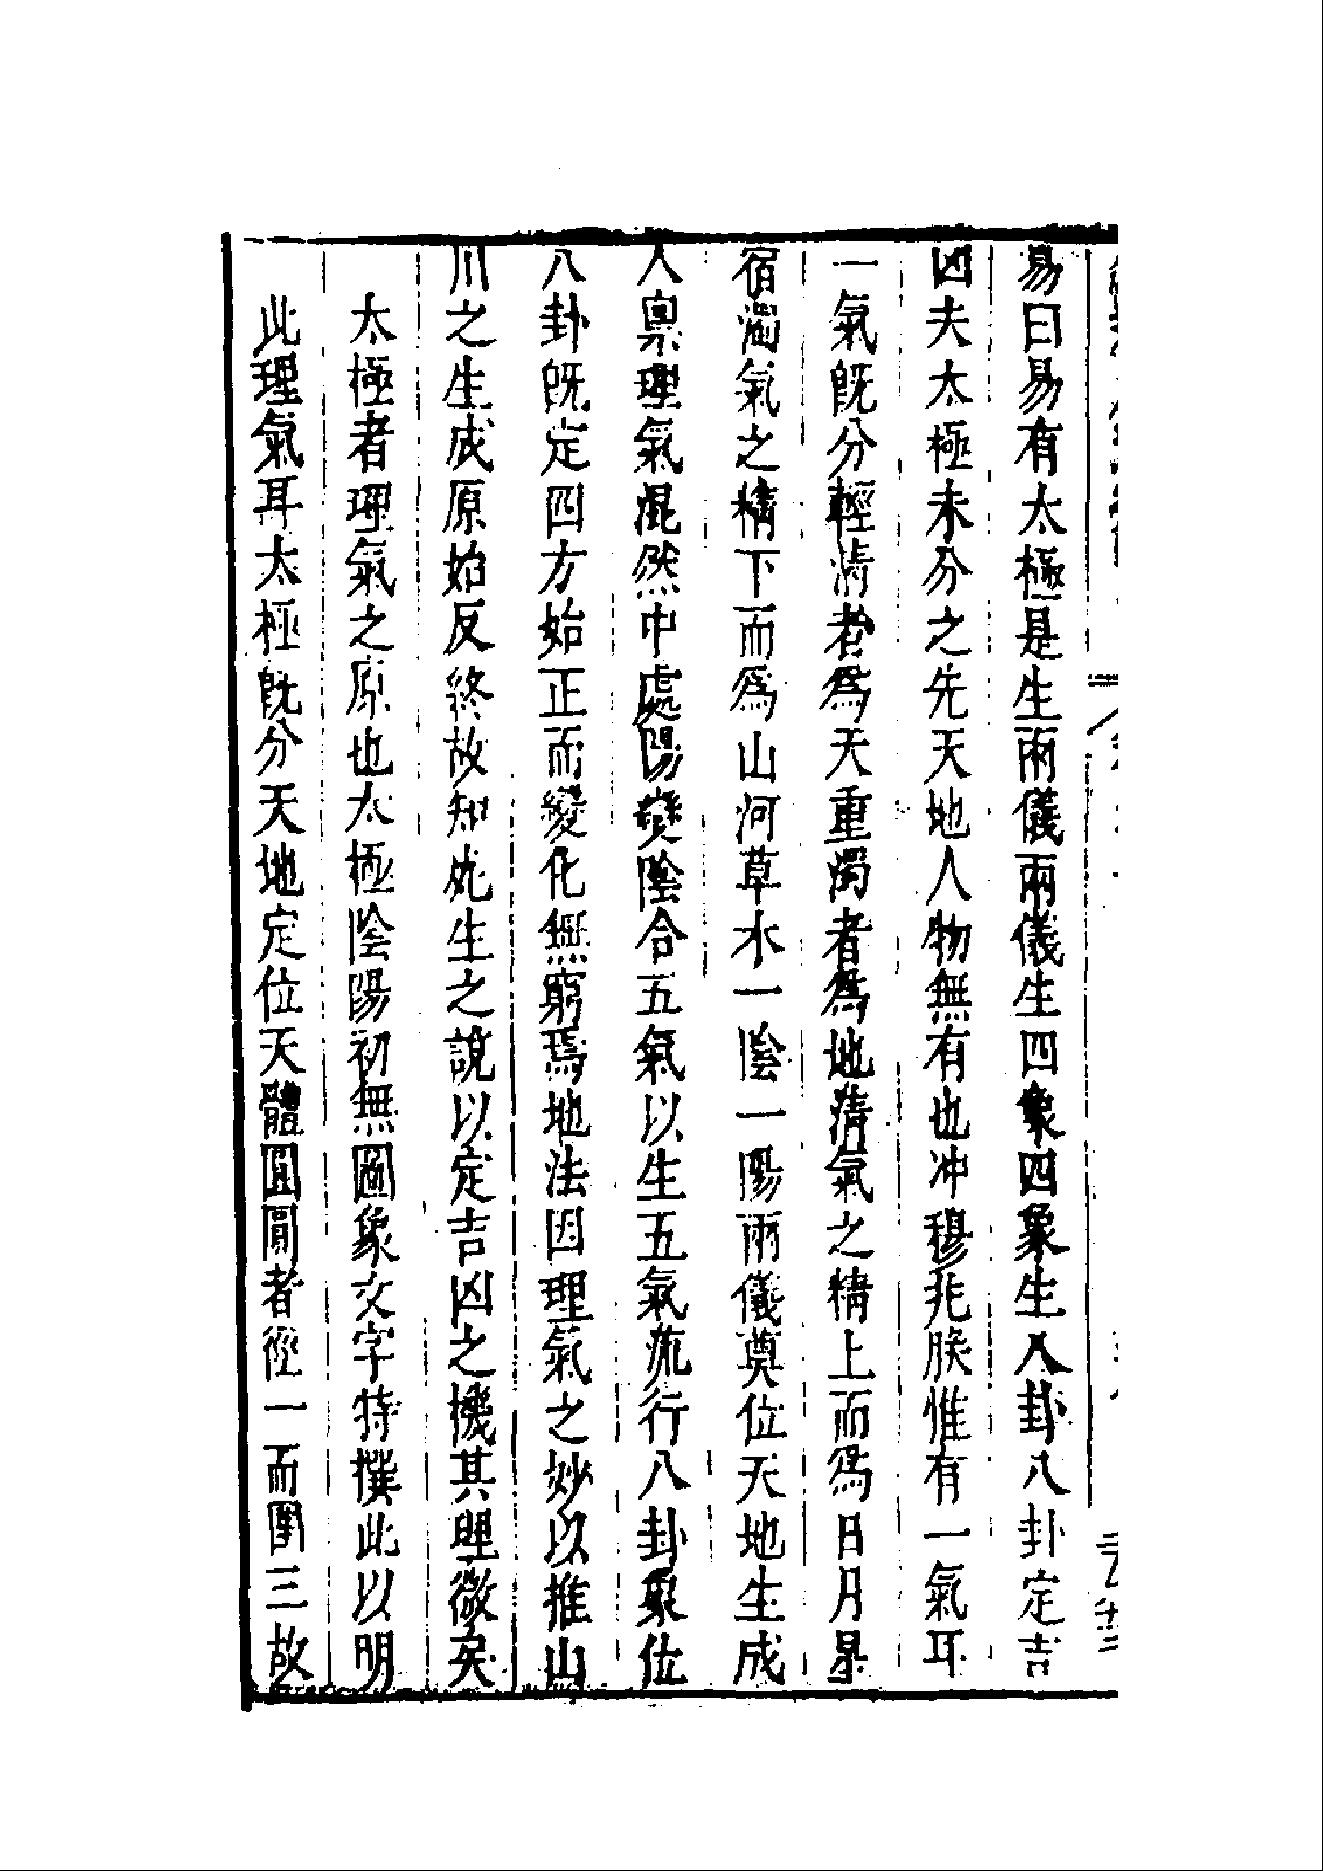 易曰易有太極是生兩儀兩儀生四象四象生八卦八卦定吉
凶夫太極未分之先天地人物無有也冲穆兆朕惟有一氣耳
一氣既分輕清者為天重濁者為地清氣之精上而為日月星
宿濁氣之精下而為山河草木一陰一陽兩儀奠位天地生成
人稟理氣混然中處陽變陰合五氣以生五氣流行八卦象位
八卦既定四方始正而變化無窮焉地法因理氣之妙以推山
川之生成原始反終故知死生之說以定吉凶之機其理微矣
太極者理氣之原也太極陰陽初無圖象文字特撰此以明
此理氣耳太極既分天地定位天體圓圓者徑一而圍三故